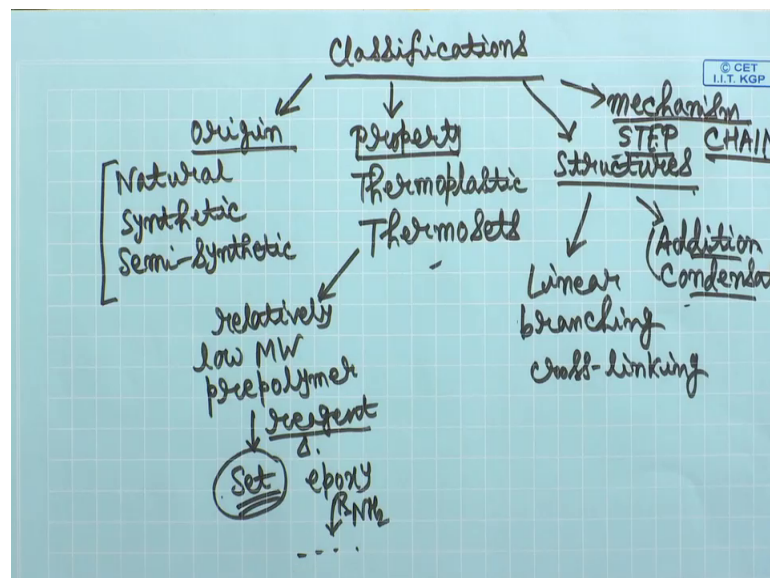 Classifications
© CET
I.I.T. KGP
Origin
Natural
Synthetic
Semi-Synthetic
Property
Thermoplastic
Thermosets
relatively
low MW
prepolymer
reagent
Δ
Set
epoxy
RNH2
.....
mechanism
STEP CHAIN
Structures
Linear
branching
cross-linking
Addition
Condensa